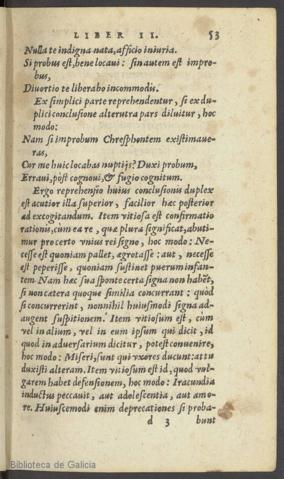 LIBER II. 53
Nulla te indigna nata, afficio iniuria.
Si probus est, bene locaui: sin autem est impro-
bus,
Diuortio te liberabo incommodis.
Ex simplici parte reprehendentur, si ex du-
plici conclusione alterutra pars diluitur, hoc
modo:
Nam si improbum Chresphontem existimaue-
ras,
Cor me huic locabas nuptijs? Duxi probum,
Erraui, pòst cognoui, & fugio cognitum.
Ergo reprehensio huius conclusionis duplex
est acutior illa superior, facilior hæc posterior
ad excogitandum. Item vitiosa est confirmatio
rationis, cùm ea re, quæ plura significat, abuti-
mur pro certo vnius rei signo, hoc modo: Ne-
cesse est quoniam pallet, ægrotasse: aut, necesse
est peperisse, quoniam sustinet puerum infan-
tem. Nam hæc sua sponte certa signa non habēt,
si non cætera quoque similia concurrant: quòd
si concurrerint, nonnihil huiusmodi signa ad-
augent suspitionem. Item vitiosum est, cùm
vel in alium, vel in eum ipsum qui dicit, id
quod in aduersarium dicitur, potest conuenire,
hoc modo: Miseri, sunt qui vxores ducunt: at tu
duxisti alteram. Item vitiosum est id, quod vul-
garem habet defensionem, hoc modo: Iracundia
inductus peccauit, aut adolescentia, aut amo-
re. Huiuscemodi enim deprecationes si proba-
d 3 bunt
Biblioteca de Galicia